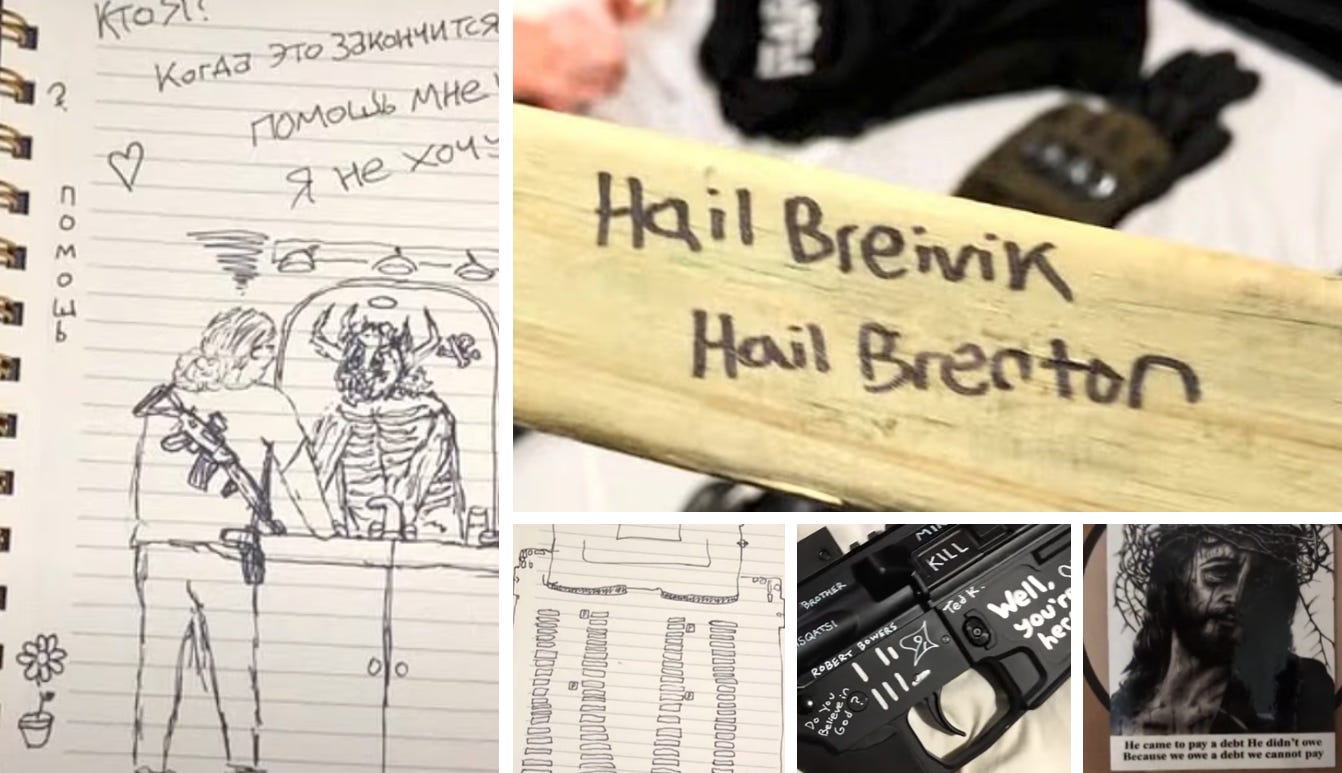 Кто я?
Когда это закончится
?
помошь мне
я не хочу
помошь
Hail Breivik
Hail Brenton
KILL
BROTHER
Ted K.
Well,
you're
here
ROBERT BOWERS
Do You
Believe in
God?
He came to pay a debt He didn't owe
Because we owe a debt we cannot pay